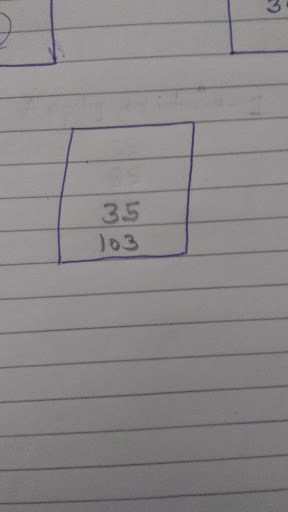 35
103